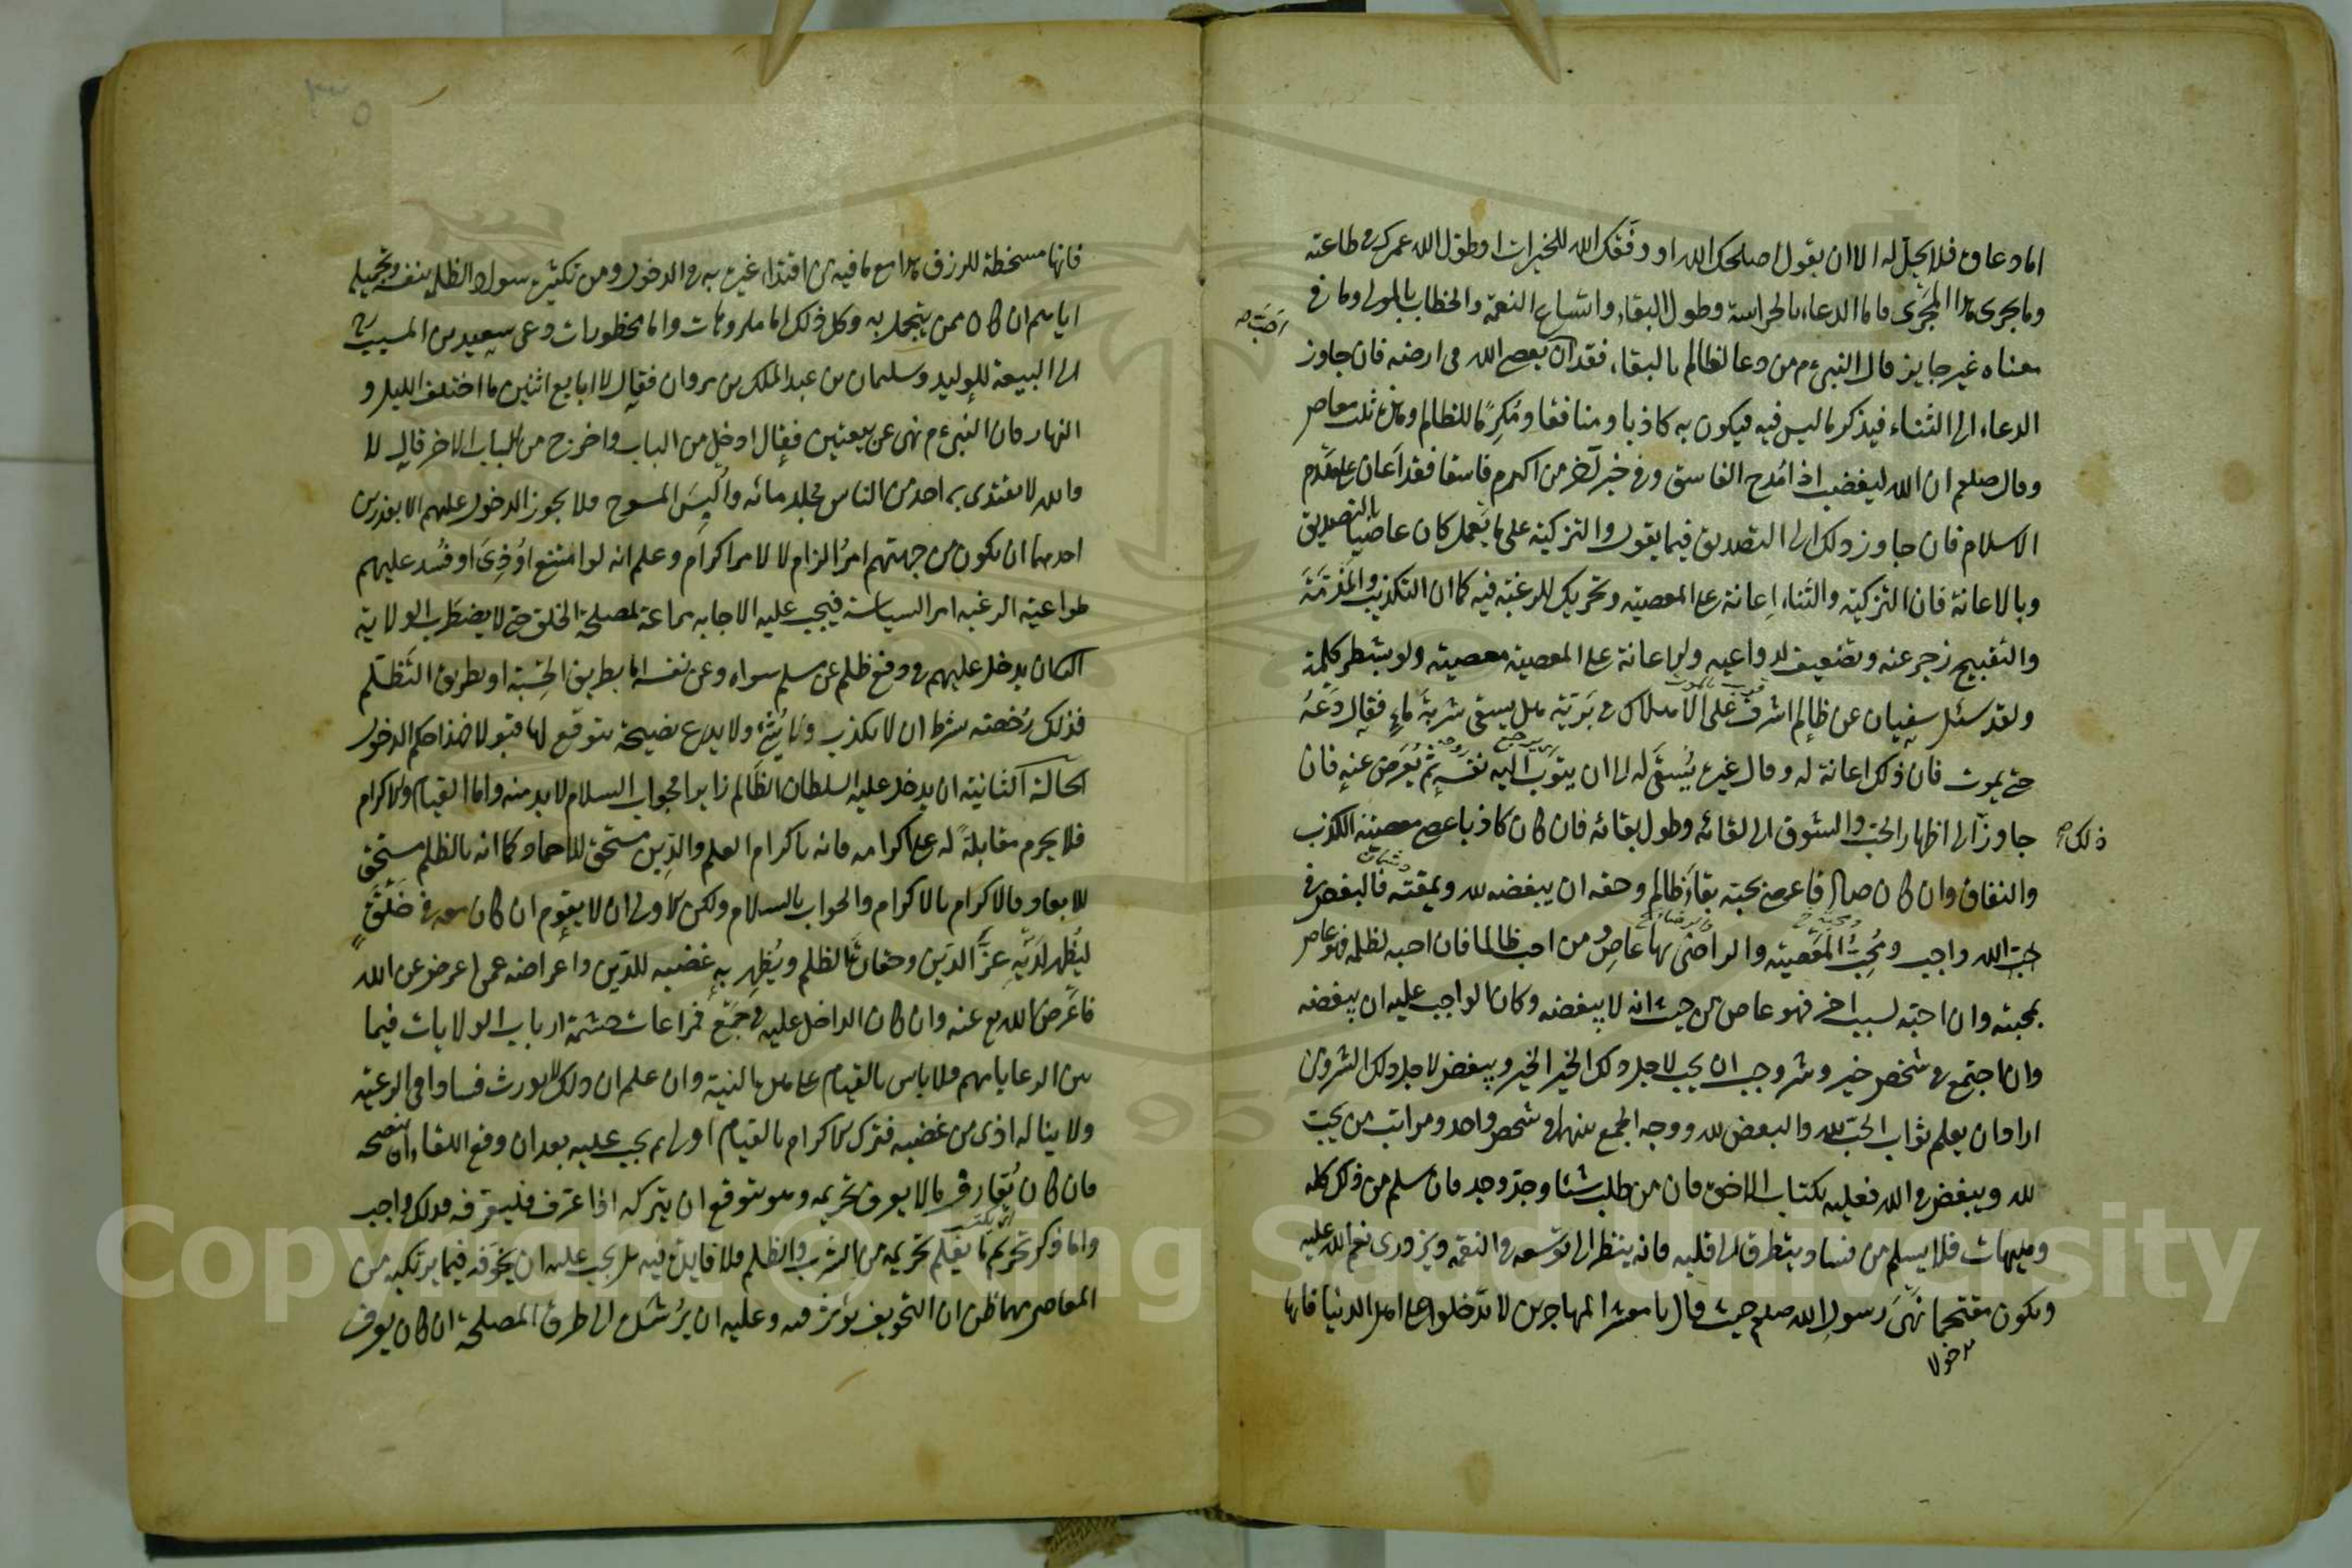 اما دعاؤه فلا يحل له الا ان يقول اصلحك الله او وفقك الله للخيرات او طول الله عمرك في طاعته
وما يجرى هذا المجرى فاما الدعاء بالحراسة وطول البقاء واتساع النعمة والخطاب بالمولى وما في
معناه غير جايز قال النبي ءم من دعا لظالم بالبقاء فقد ان يعصى الله في ارضه فان جاوز
احب صح
الدعاء الى الثناء فيذكر ما ليس فيه فيكون به كاذبا ومنافقا ومكرما للظالم وهذه ثلث معاص
وقال صلعم ان الله ليغضب اذا مدح الفاسق وفي خبر آخر من اكرم فاسقا فقد اعان على هدم
الاسلام فان جاوز ذلك الى التصديق فيما يقول والتزكية على ما يعمل كان عاصيا بالتصديق
وبالاعانة فان التزكية والثناء اعانة على المعصية وتحريك للرغبة فيه كما ان التكذيب والمذمة
والتقبيح زجر عنه وتضعيف لدواعيه والاعانة على المعصية معصية ولو بشطر كلمة
ولقد سئل سفيان عن ظالم اشرف على الاهلاك في برية هل يسقى شربة ماء فقال دعه
حتى يموت فان ذلك اعانة له وقال غيره يسقى له الى ان يثوب اليه نفسه ثم يعرض عنه فان
جاوز الى اظهار الحب والشوق الى لقائه وطول بقائه فان كان كاذبا عصى معصية الكذب
ذلك صح
والنفاق وان كان صادقا عصى بحبه بقاء ظالم وحقه ان يبغضه لله ويمقته فالبغض في
حب الله واجب ومحب المعصية والراضى بها عاص ومن احب ظالما فان احبه لظلمه فهو عاص
بمحبته وان احبه لسبب اخر فهو عاص من حيث انه لا يبغضه وكان الواجب عليه ان يبغضه
وان اجتمع في شخص خير وشر وجب ان يحب لاجل ذلك الخير الخير ويبغض لاجل ذلك الشر ومن
اراد ان يعلم ثواب الحب لله والبغض لله ووجه الجمع بينهما في شخص واحد ومراتب من يحب
لله ويبغض في الله فعليه بكتاب الاخوة فان من طلب شيئا وجد وجد فان سلم من ذلك كله
وهيهات فلا يسلم من فساد يتطرق الى قلبه فانه ينظر الى توسعه في النعمة ويزدرى نعم الله عليه
ويكون مقتحما نهى رسول الله صلعم حيث قال يا معشر المهاجرين لا تدخلوا على اهل الدنيا فانها
فانها مسخطة للرزق هذا مع ما فيه من اقتداء غيره به في الدخول ومن تكثيره سواد الظلمة بنفسه وتجميله
اياهم ان كان ممن يتجمل به وكل ذلك اما مكروهات واما محظورات دعى سعيد بن المسيب
الى البيعة للوليد وسليمان بن عبد الملك بن مروان فقال لا ابايع اثنين ما اختلف الليل و
النهار فان النبي ءم نهى عن بيعتين فقال ادخل من الباب واخرج من الباب الاخر قال لا
والله لا يقتدى بى احد من الناس فجلد مائه والبس المسوح فلا يجوز الدخول عليهم الا بعذرين
احدهما ان يكون من جهتهم امر الزام لا امر اكرام وعلم انه لو امتنع اوذى او فسد عليهم
طواعية الرعية امر السياسة فيجب عليه الاجابه مراعة لمصلحة الخلق حتى لا يضطرب الولاية
الثانى ان يدخل عليهم في دفع ظلم عن مسلم سواه وعن نفسه اما بطريق الحسبة او بطريق التظلم
فذلك رخصته بشرط ان لا يكذب ولا يثنى ولا يدع نصيحة يتوقع لها قبولا فهذا حكم الدخول
الحالة الثانية ان يدخل عليه السلطان الظالم زايرا فجواب السلام لا بد منه واما القيام والاكرام
فلا يحرم مقابلة له على اكرامه فانه باكرام العلم والدين مستحق للاحماد كما انه بالظلم مستحق
للابعاد فالاكرام بالاكرام والجواب بالسلام ولكن الاولى ان لا يقوم ان كان معه في خلوة
ليظهر لديه عز الدين وحقارة الظلم ويظهر به غضبه للدين واعراضه عمن اعرض عن الله
فاعرض الله تع عنه وان كان الداخل عليه في جمع فمراعات حشمة ارباب الولايات فيما
بين الرعايا مهم فلا باس بالقيام على هذا النية وان علم ان ذلك لا يورث فسادا في الرعية
ولا يناله اذى من غضبه فترك الاكرام بالقيام اولى ثم يجب عليه بعد ان وقع اللقاء ان ينصحه
فان كان يقارف ما لا يعرف تحريمه وهو يتوقع ان يتركه اذا عرف فليعرفه فذلك واجب
واما ذكر تحريم ما يعلم تحريمه من الشرب والظلم فلا فايدة فيه بل يجب عليه ان يخوفه فيما يرتكبه من
المعاصى مهما ظن ان التخويف يؤثر فيه وعليه ان يرشده الى طرق المصلحة ان كان يعرف
Copyright © King Saud University